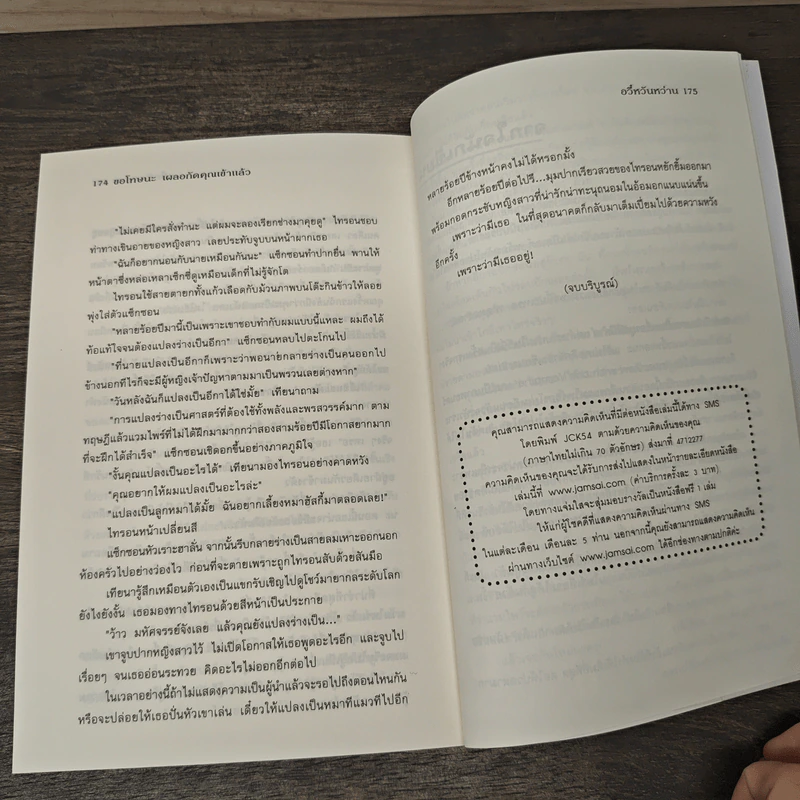 174 ขอโทษนะ เผลอกัดคุณเข้าแล้ว
"ไม่เคยมีใครสั่งทำนะ แต่ผมจะลองเรียกช่างมาคุยดู" ไทรอนชอบ
ท่าทางเขินอายของหญิงสาว เลยประทับจูบบนหน้าผากเธอ
"ฉันก็อยากนอนกับนายเหมือนกันนะ" แซ็กซอนทำปากยื่น พานให้
หน้าตาซึ่งหล่อเหลาเซ็กซี่ดูเหมือนเด็กที่ไม่รู้จักโต
ไทรอนใช้สายตายกทั้งแก้วเลือดกับม้วนภาพบนโต๊ะกินข้าวให้ลอย
พุ่งใส่ตัวแซ็กซอน
"หลายร้อยปีมานี้เป็นเพราะเขาชอบทำกับผมแบบนี้แหละ ผมถึงได้
ท้อแท้ใจจนต้องแปลงร่างเป็นอีกา" แซ็กซอนหลบไปตะโกนไป
"ที่นายแปลงเป็นอีกาก็เพราะว่าพอนายกลายร่างเป็นคนออกไป
ข้างนอกทีไรก็จะมีผู้หญิงเจ้าปัญหาตามมาเป็นพรวนเลยต่างหาก"
"วันหลังฉันก็แปลงเป็นอีกาได้ใช่มั้ย" เทียนาถาม
"การแปลงร่างเป็นศาสตร์ที่ต้องใช้ทั้งพลังและพรสวรรค์มาก ตาม
ทฤษฎีแล้วแวมไพร์ที่ไม่ได้ฝึกมามากกว่าสองสามร้อยปีมีโอกาสยากมาก
ที่จะฝึกได้สำเร็จ" แซ็กซอนเชิดอกขึ้นอย่างภาคภูมิใจ
"งั้นคุณแปลงเป็นอะไรได้" เทียนามองไทรอนอย่างคาดหวัง
"คุณอยากให้ผมแปลงเป็นอะไรล่ะ"
"แปลงเป็นลูกหมาได้มั้ย ฉันอยากเลี้ยงหมาฮัสกี้มาตลอดเลย!"
ไทรอนหน้าเปลี่ยนสี
แซ็กซอนหัวเราะฮาลั่น จากนั้นรีบกลายร่างเป็นสายลมเหาะออกนอก
ห้องครัวไปอย่างว่องไว ก่อนที่จะตายเพราะถูกไทรอนสับด้วยสันมือ
เทียนารู้สึกเหมือนตัวเองเป็นแขกรับเชิญไปดูโชว์มายากลระดับโลก
ยังไงยังงั้น เธอมองทางไทรอนด้วยสีหน้าเป็นประกาย
"ว้าว มหัศจรรย์จังเลย แล้วคุณยังแปลงร่างเป็น..."
เขาจูบปากหญิงสาวไว้ ไม่เปิดโอกาสให้เธอพูดอะไรอีก และจูบไป
เรื่อยๆ จนเธออ่อนระทวย คิดอะไรไม่ออกอีกต่อไป
ในเวลาอย่างนี้ถ้าไม่แสดงความเป็นผู้นำแล้วจะรอไปถึงตอนไหนกัน
หรือจะปล่อยให้เธอปั่นหัวเขาเล่น เดี๋ยวให้แปลงเป็นหมาทีแมวทีไปอีก
อวี้หวันหว่าน 175
หลายร้อยปีข้างหน้าคงไม่ได้หรอกมั้ง
อีกหลายร้อยปีต่อไปรึ...มุมปากเรียวสวยของไทรอนหยักยิ้มออกมา
พร้อมกอดกระชับหญิงสาวที่น่ารักน่าทะนุถนอมในอ้อมอกแนบแน่นขึ้น
เพราะว่ามีเธอ ในที่สุดอนาคตก็กลับมาเต็มเปี่ยมไปด้วยความหวัง
อีกครั้ง
เพราะว่ามีเธออยู่!
(จบบริบูรณ์)
คุณสามารถแสดงความคิดเห็นที่มีต่อหนังสือเล่มนี้ได้ทาง SMS
โดยพิมพ์ JCK54 ตามด้วยความคิดเห็นของคุณ
(ภาษาไทยไม่เกิน 70 ตัวอักษร) ส่งมาที่ 4712277
ความคิดเห็นของคุณจะได้รับการส่งไปแสดงในหน้ารายละเอียดหนังสือ
เล่มนี้ที่ www.jamsai.com (ค่าบริการครั้งละ 3 บาท)
โดยทางแจ่มใสจะสุ่มมอบรางวัลเป็นหนังสือฟรี 1 เล่ม
ให้แก่ผู้โชคดีที่แสดงความคิดเห็นผ่านทาง SMS
ในแต่ละเดือน เดือนละ 5 ท่าน นอกจากนี้คุณยังสามารถแสดงความคิดเห็น
ผ่านทางเว็บไซต์ www.jamsai.com ได้อีกช่องทางตามปกติค่ะ